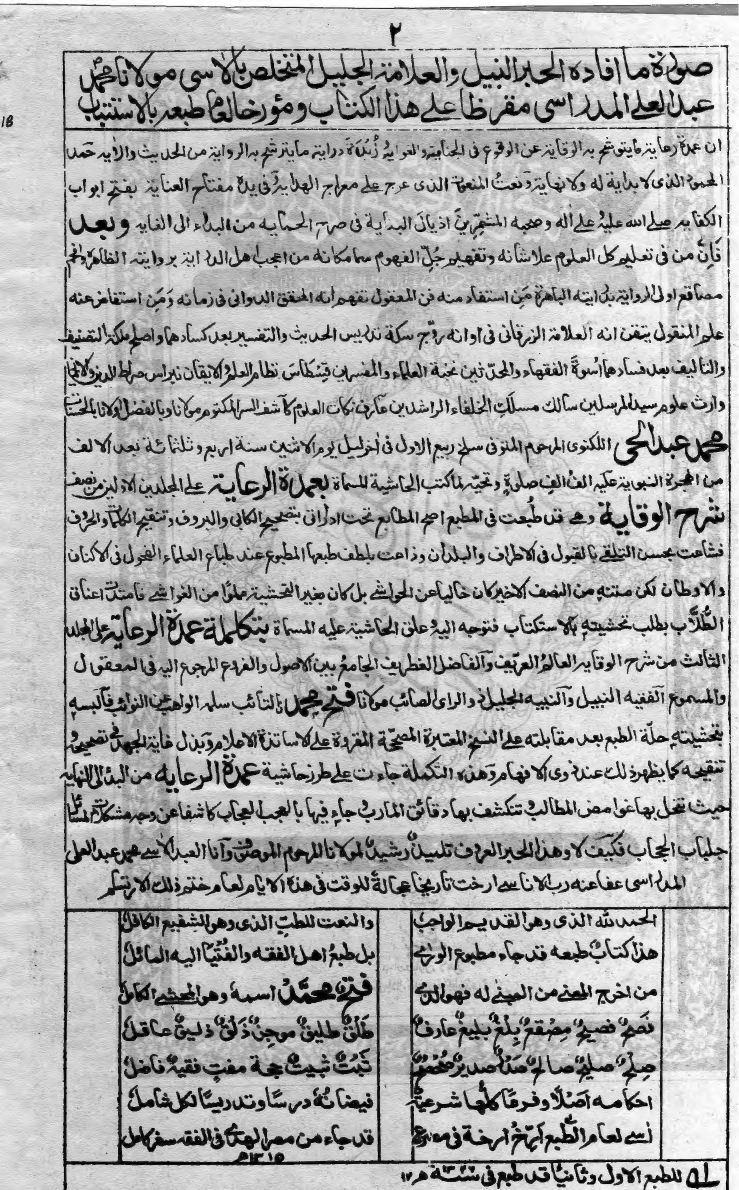 ٢
صورة ما افاده الحبر النبيل والعلامة الجليل المتخلص بالآسى مولانا محمد
عبد العلى المدراسى مقرظا على هذا الكتاب ومؤرخا لعام طبعه بالاستتباب
ان عمدة رعاية ما يتوشح به الوقاية عن الوقوع فى الجناية والغواية زبدة دراية ما يترشح به الرواية من الحديث والآية حمد
المحمود الذى لا بداية له ولا نهاية ونعت المنعوت الذى عرج على معراج الهداية فى يده مفتاح العناية بفتح ابواب
الكفاية صلى الله عليه وعلى آله وصحبه المشمرين اذيال البداية فى صرح الحماية من البداء الى الغاية وبعد
فان من فى تعليم كل العلوم علا شانه وتفهيم جل الفهوم سما مكانه من اعجب اهل الدراية بروايته الظاهرة وافحم
مصاقع اولى الرواية بدرايته الباهرة من استفاد منه فن المعقول تفهم انه المحقق الدوانى فى زمانه ومن استفاض عنه
علم المنقول يتفن انه العلامة الزرقانى فى اوانه روج سكة تدريس الحديث والتفسير بعد كسادها واصلح ملكة التصنيف
والتاليف بعد فسادها اسوة الفقهاء والمحدثين نخبة العلماء والمفسرين قسطاس نظام العلم والايقان نبراس صراط الدين
وارث علوم سيد المرسلين سالك مسلك الخلفاء الراشدين عارف نكات العلوم كاشف السر المكتوم مولانا وبالفضل اولانا
محمد عبد الحى اللكنوى المرحوم المتوفى سلخ ربيع الاول فى اخر ليل يوم الاثنين سنة اربع وثلثمائة بعد الالف
من الهجرة النبوية عليه الف الف صلوة وتحية لما كتب الحاشية المسماة بعمدة الرعاية على المجلدين الاولين من نصف
شرح الوقاية وهى قد طبعت فى المطبع اصح المطابع تحت ادارتى بتصحيح الكافى والبروف وتنقيح الكلمات والحروف
فشاعت بحسن التلقى بالقبول فى الاطراف والبلدان وذاعت بلطف طبعها المطبوع عند طباع العلماء الفحول فى الاكنان
والاوطان لكن متنه من النصف الاخير كان خاليا عن الحواشى بل كان بغير التحشية مملوا من الغواشى فامتدت اعناق
الطلاب بطلب تحشيته بالاستكتاب فتوجه اليه وعلق الحاشية عليه المسماة بتكملة عمدة الرعاية على المجلد
الثالث من شرح الوقاية العالم العريف والفاضل الغطريف الجامع بين الاصول والفروع المرجوع اليه فى المعقول
والمسموع الفقيه النبيل والنبيه الجليل ذو الراى الصائب مولانا فتح محمد بالتائب سلمه الواهب عن النوائب فالبسه
بتحشيته حلة الطبع بعد مقابلته على النسخ المعتبرة المصححة المقروة على الاساتذة الاعلام وبذل غاية الجهد فى تصحيحه و
تنقيحه كما يظهر ذلك عند ذوى الافهام وهذه التكملة جاءت على طرز حاشية عمدة الرعاية من البدء الى النهاية
حيث تنحل بها غوامض المطالب وتنكشف بها دقائق المآرب وجاء فيها بالعجب العجاب كاشفا عن وجه مشكلات المسائل
جلباب الحجاب فكيف لا وهذا الحبر العروف تلميذ رشيد لمولانا المرحوم الموصوف وانا العبد الآسى محمد عبد العلى
المدراسى عفا عنه رب الاناسى ارخت تاريخا عجالة للوقت فى هذه الايام لعام ختم ذلك الارتسام
الحمد لله الذى وهو القديم الواجب والنعت للطب الذى وهو الشفيع الكافل
هذا كتاب طبعه قد جاء مطبوع الورى بل طبع اهل الفقه والفتيا اليه المائل
من اخرج المعنى من المبنى له فهو الذى فتح محمد اسمه وهو المحشى الكامل
نصح فصيح مصقع بلغ بليغ عارف طلق طليق موجز ذلق ذليق عاقل
صلح صليح صالح ثبت ثبيت حجة مفت فقيه فاضل
احكامه اصلا وفرعا كلها شرعية فيضانه درسا وتدريسا لكل شامل
آسى لعام الطبع ارخ قد جاء من مصر الهدى فى الفقه سفر كامل
١٣١٥ھ
للطبع الاول وثانيا قد طبع فى سنة